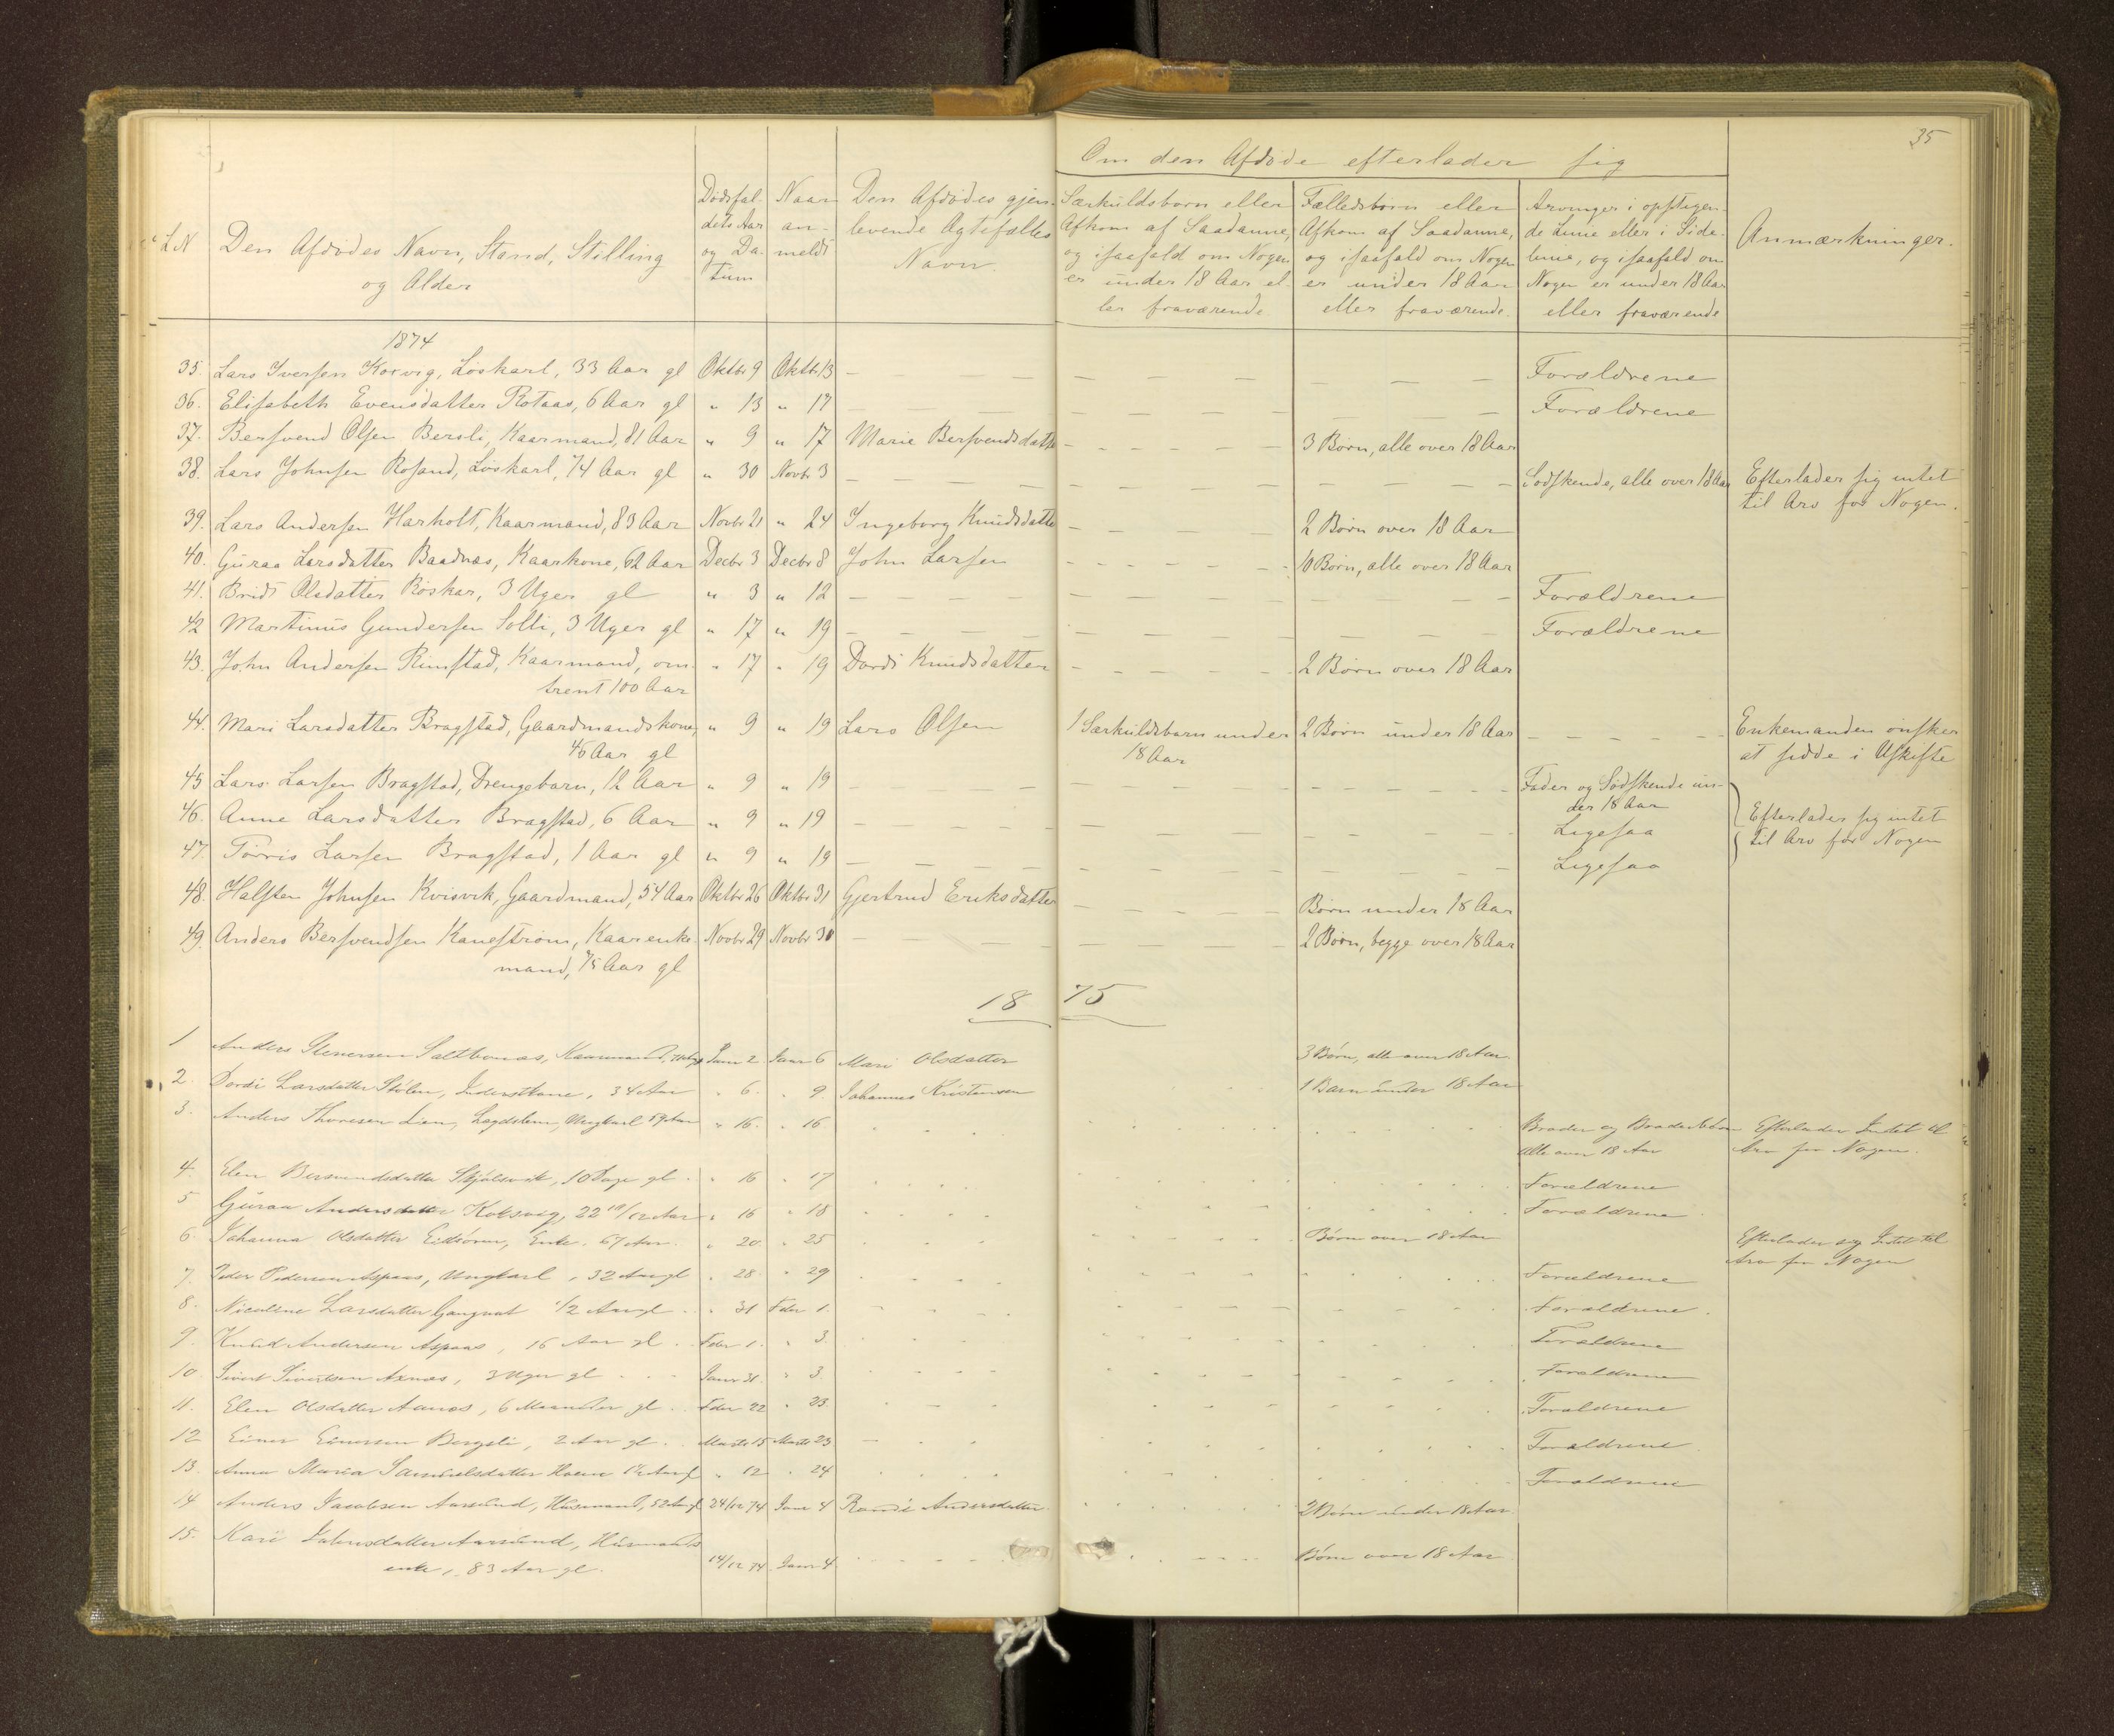 35
Om den Afdøde efterlader sig
LN
Den Afdødes Navn, Stand, Stilling
og Alder
Dødsfal-
dets Aar
og Da-
tum
Naar
an-
meldt
Den Afdødes gjen-
levende Ægtefælles
Navn.
Særkuldsbørn eller
Afkom af Saadanne,
og isaafald om Nogen
er under 18 Aar el-
ler fraværende
Fælledsbørn eller
Afkom af Saadanne,
og isaafald om Nogen
er under 18 Aar
eller fraværende.
Arvinger i opstigen-
de Linie eller i Side-
linie, og isaafald om
Nogen er under 18 Aar
eller fraværende
Anmærkninger.
1874
35. Lars Iversen Korvig, Løskarl, 33 Aar gl Oktbr 9 Oktbr 13 Forældrene
36. Elisabeth Evensdatter Rotaas, 6 Aar gl " 13 " 17 Forældrene
37. Bersvend Olsen Bersli, Kaarmand, 81 Aar " 9 " 17 Marie Bersvendsdatter 3 Børn, alle over 18 Aar
38. Lars Johnsen Rosand, Løskarl, 74 Aar gl " 30 Novbr 3 Sødskende, alle over 18 Aar Efterlader sig intet
til Arv for Nogen.
39. Lars Andersen Harholt, Kaarmand, 83 Aar Novbr 21 " 24 Ingeborg Knudsdatter 2 Børn over 18 Aar
40. Guraa Larsdatter Baadnæs, Kaarkone, 62 Aar Decbr 3 Decbr 8 John Larsen 10 Børn, alle over 18 Aar
41. Bridt Olsdatter Røskar, 3 Uger gl " 3 " 12 Forældrene
42 Martinus Gundersen Solli, 3 Uger gl " 17 " 19 Forældrene
43. John Andersen Rimstad, Kaarmand, om- " 17 " 19 Dordi Knudsdatter 2 Børn over 18 Aar
trent 100 Aar
44. Mari Larsdatter Bragstad, Gaardmandskone, " 9 " 19 Lars Olsen 1 Særkuldsbarn under 2 Børn under 18 Aar Enkemanden ønsker
46 Aar gl 18 Aar at sidde i Uskifte
45 Lars Larsen Bragstad, Drengebarn, 12 Aar " 9 " 19 Fader og Sødskende un-
der 18 Aar
46. Anne Larsdatter Bragstad, 6 Aar " 9 " 19 Ligesaa Efterlader sig intet
til Arv for Nogen
47. Tørris Larsen Bragstad, 1 Aar gl " 9 " 19 Ligesaa
48. Halsten Johnsen Kvisvik, Gaardmand, 54 Aar Oktbr 26 Oktbr 31 Gjertrud Eriksdatter Børn under 18 Aar
49. Anders Bersvendsen Kanestrøm, Kaarenke- Novbr 29 Novbr 30 2 Børn, begge over 18 Aar
mand, 75 Aar gl
1875
1 Anders Saltbonæs, Kaarmand, Janr 2 Janr 6 Mari Olsdatter 3 Børn, alle over 18 Aar
2. Dordi Larsdatter Stølen, Inderstkone, 34 Aar " 6. " 9. Johannes Kristensen 1 Barn under 18 Aar
3. Anders Thoresen Lien, Lægdslem, Ungkarl 59 Aar " 16. " 16 Broder og Efterlader Intet til
alle over 18 Aar Arv for Nogen.
4. Elen Skjølsvik, 10 Dage gl. " 16 " 17 Forældrene
5 Guraa Andersdatter Korsvig, 22 10/12 Aar " 16 " 18 Forældrene
6. Johanna Olsdatter Eidsøren, Enke, 67 Aar. " 20. " 25 Børn over 18 Aar Efterlader sig Intet til
Arv for Nogen
7. Peder Pedersen Aspaas, Ungkarl, 32 Aar gl " 28. " 29 Forældrene
8. Nicoline Larsdatter Gangnat 1/2 Aar gl " 31 Febr 1. Forældrene.
9. Knud Andersen Aspaas, 16 Aar gl. Febr 1. " 3. Forældrene
10. Sivert Sivertsen Axnæs, 3 Uger gl Janr 31. " 3. Forældrene
11. Elen Olsdatter Aanæs, 6 Maaneder gl. Febr 22 " 23 Forældrene
12 Einer Einersen Bergsli, 2 Aar gl. Marts 15 Marts 23 Forældrene
13. Anna Maria Samuelsdatter 1 1/2 Aar gl " 12 " 24 Forældrene
14 Anders Jacobsen Aarsund, Husmand, 52 Aar gl 24/12 74 Janr 4 Randi Andersdatter 2 Børn under 18 Aar.
15. Kari Aarsund, Husmands
enke, 83 Aar gl. 14/12 74. Janr 4. Børn over 18 Aar